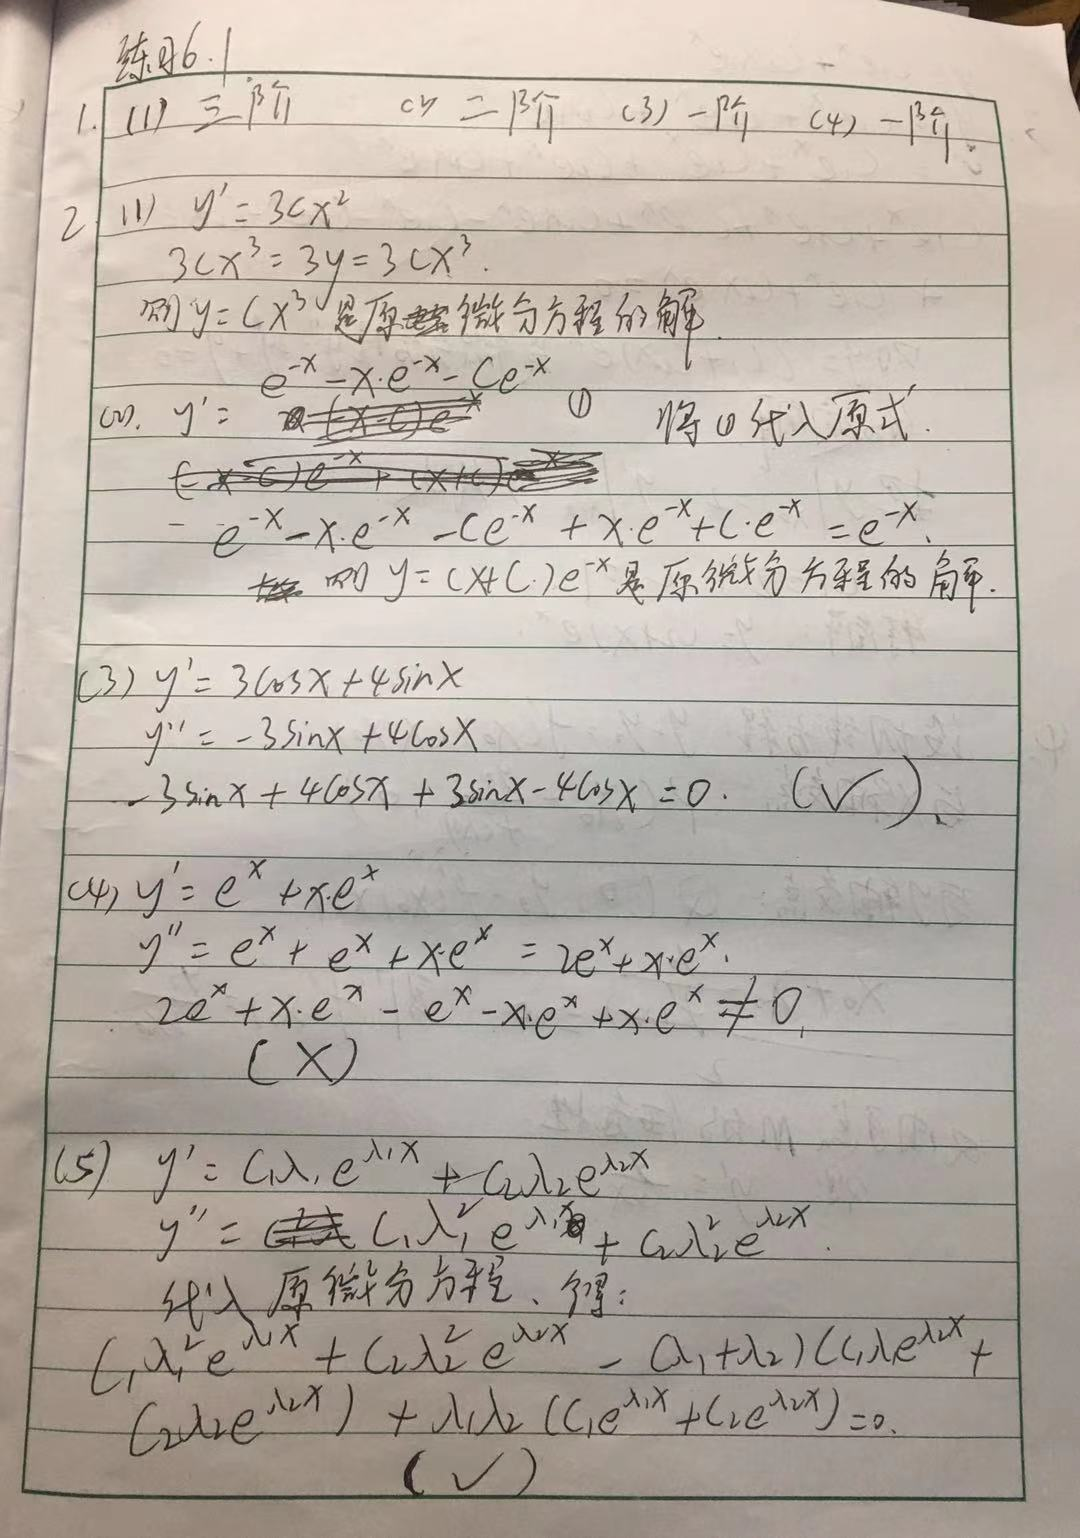 练习6.1
1. (1) 三阶 (2) 二阶 (3) 一阶 (4) 一阶.
2. (1) y' = 3Cx²
3Cx³ = 3y = 3Cx³.
则y = Cx³是原微分方程的解.
e^{-x} - x·e^{-x} - Ce^{-x}
(2). y' = ① 将①代入原式.
e^{-x} - x·e^{-x} - Ce^{-x} + x·e^{-x} + C·e^{-x} = e^{-x}.
则 y = (x+C)e^{-x}是原微分方程的解.
(3) y' = 3cosx + 4sinx
y'' = -3sinx + 4cosx
-3sinx + 4cosx + 3sinx - 4cosx = 0. (✓).
(4) y' = e^x + x·e^x
y'' = e^x + e^x + x·e^x = 2e^x + x·e^x.
2e^x + x·e^x - e^x - x·e^x + x·e^x ≠ 0.
(X)
(5) y' = C₁λ₁e^{λ₁x} + C₂λ₂e^{λ₂x}
y'' = C₁λ₁²e^{λ₁x} + C₂λ₂²e^{λ₂x}.
代入原微分方程、得:
C₁λ₁²e^{λ₁x} + C₂λ₂²e^{λ₂x} - (λ₁+λ₂)(C₁λ₁e^{λ₂x} +
C₂λ₂e^{λ₂x}) + λ₁λ₂(C₁e^{λ₁x} + C₂e^{λ₂x}) = 0.
(✓)